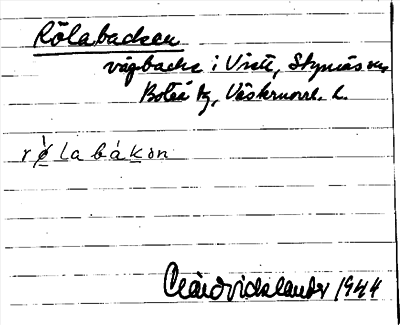 Rölabacken
vägbacke i Viste, Styrnäs sn,
Boteå tg, Västernorrl. l.
rø̀labákɔn
Claës Vidslander 1944